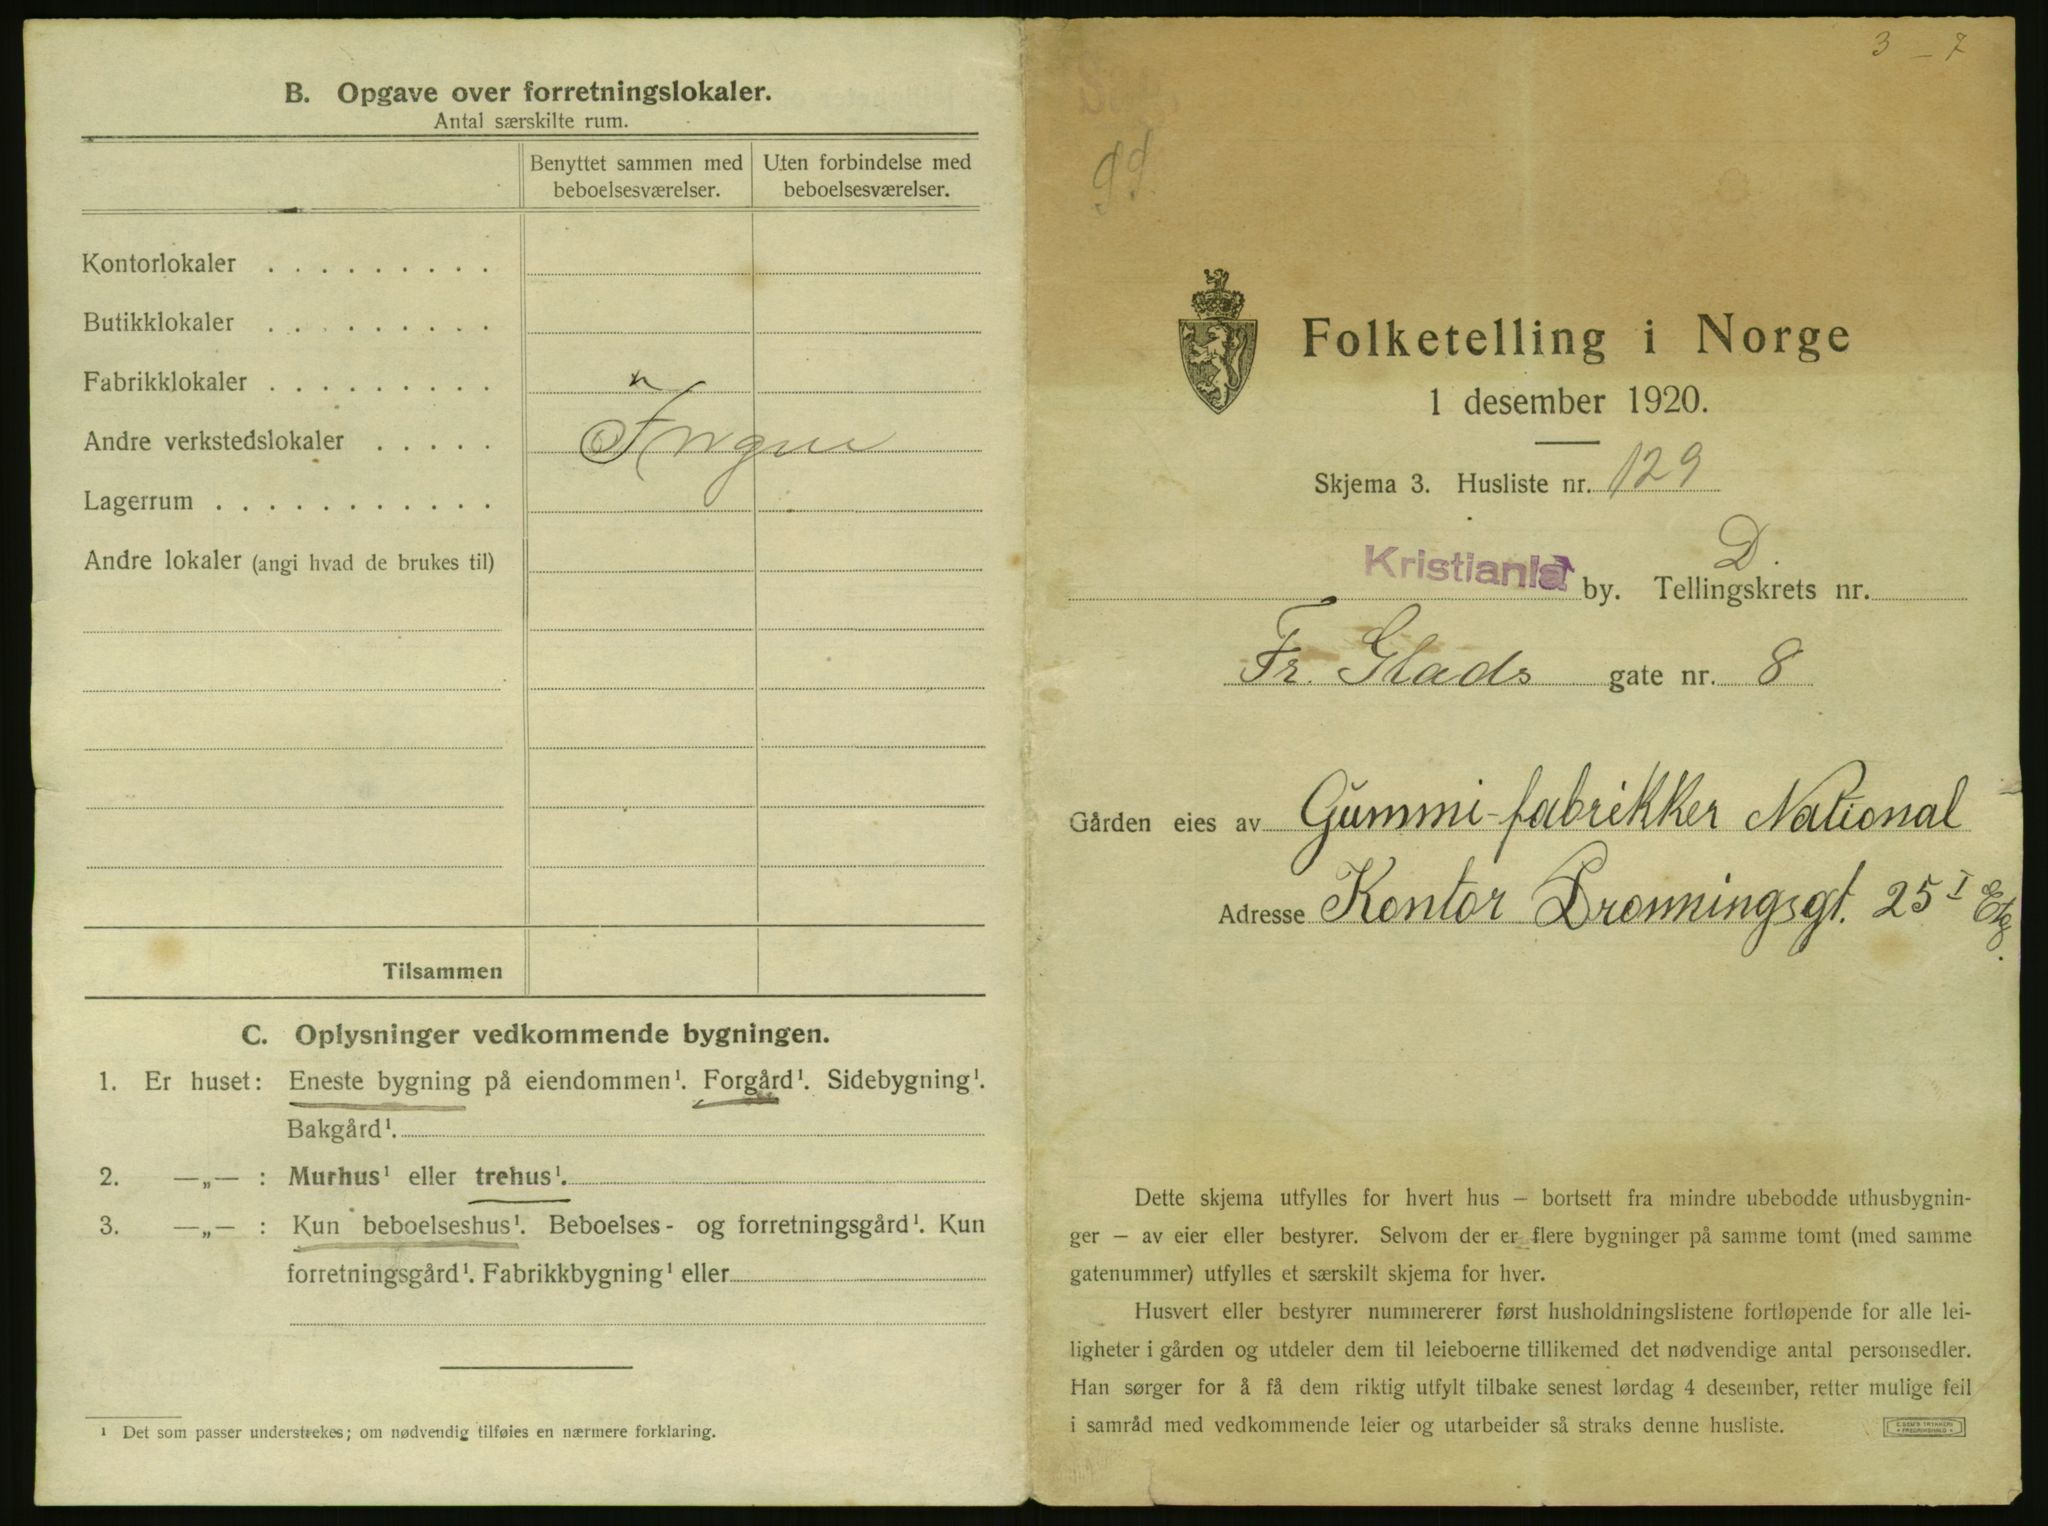 B. Opgave over forretningslokaler.
Antal særskilte rum.
Benyttet sammen med beboelsesværelser.
Uten forbindelse med beboelsesværelser.
Kontorlokaler . . . . . . . . .
Butikklokaler . . . . . . . . .
Fabrikklokaler . . . . . . . . .
Andre verkstedslokaler . . . . .
Ingen
Lagerrum . . . . . . . . . . .
Andre lokaler (angi hvad de brukes til)
Tilsammen
C. Oplysninger vedkommende bygningen.
1. Er huset: Eneste bygning på eiendommen¹. Forgård¹. Sidebygning¹.
Bakgård¹.
2. —„— : Murhus¹ eller trehus¹.
3. —„— : Kun beboelseshus¹. Beboelses- og forretningsgård¹. Kun
forretningsgård¹. Fabrikkbygning¹ eller
¹ Det som passer understrekes; om nødvendig tilføies en nærmere forklaring.
3 - 7
Folketelling i Norge
1 desember 1920.
Skjema 3. Husliste nr. 129
Kristiania by. Tellingskrets nr. D.
Fr. Glads gate nr. 8
Gården eies av Gummi-fabrikker National
Adresse Kontor Dronningsgt. 25 I Etg.
Dette skjema utfylles for hvert hus – bortsett fra mindre ubebodde uthusbygnin-
ger – av eier eller bestyrer. Selvom der er flere bygninger på samme tomt (med samme
gatenummer) utfylles et særskilt skjema for hver.
Husvert eller bestyrer nummererer først husholdningslistene fortløpende for alle lei-
ligheter i gården og utdeler dem til leieboerne tillikemed det nødvendige antal personsedler.
Han sørger for å få dem riktig utfylt tilbake senest lørdag 4 desember, retter mulige feil
i samråd med vedkommende leier og utarbeider så straks denne husliste.
E. SEM'S TRYKKERI
FREDRIKSHALD